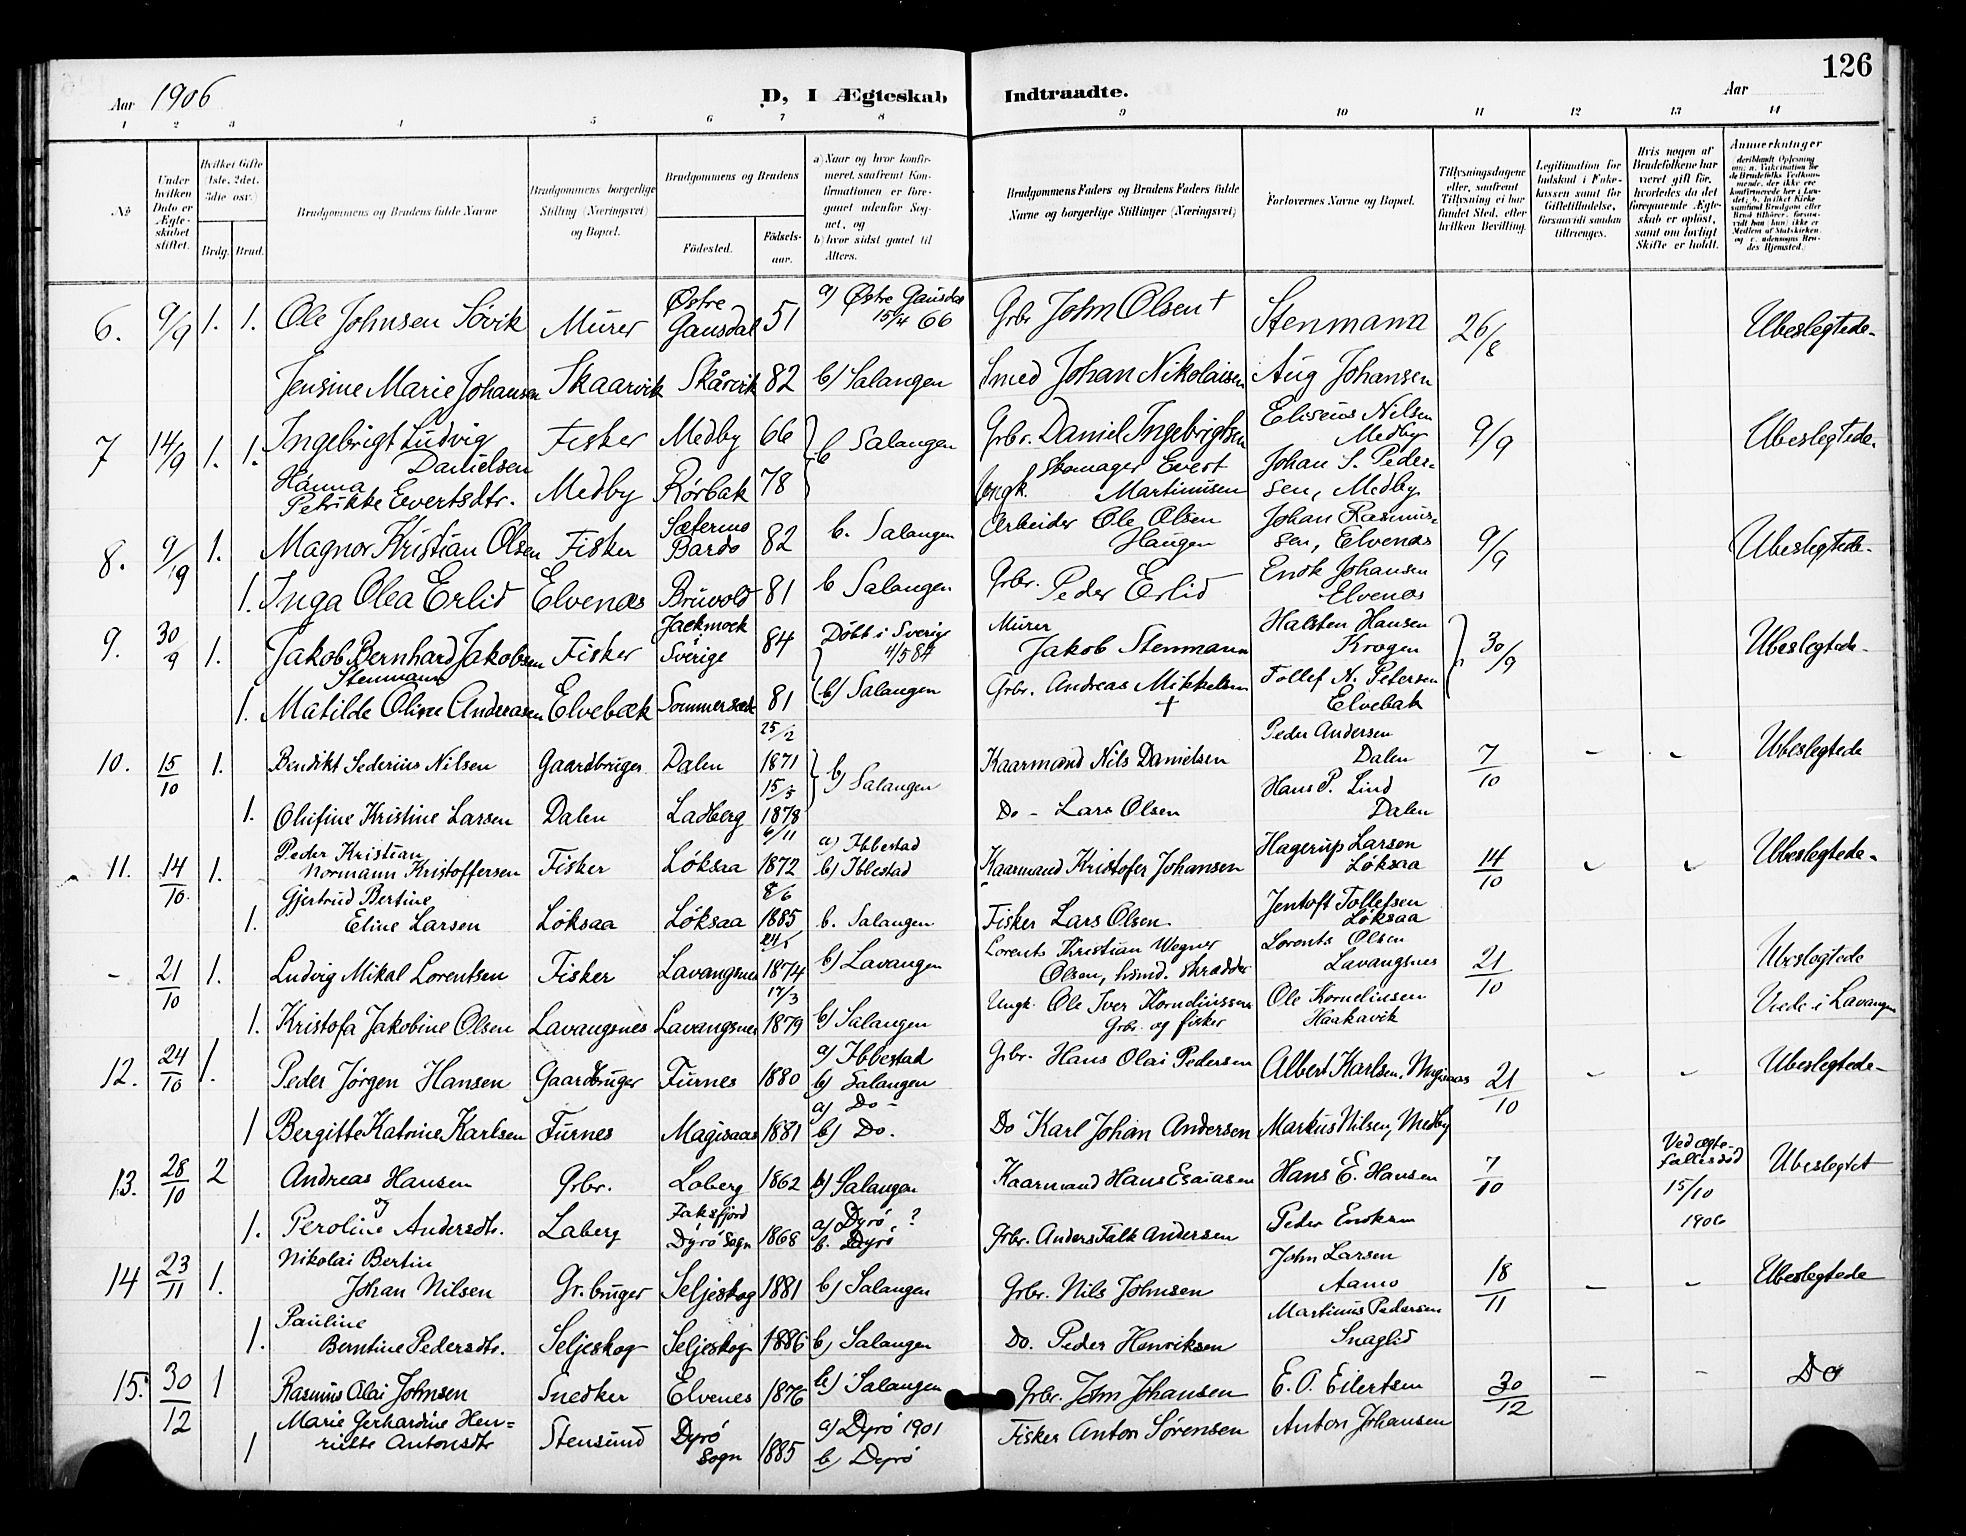 126
Aar 1906 D, I Ægteskab Indtraadte. Aar
1 2 3 4 5 6 7 8 9 10 11 12 13 14
No
Under hvilken Dato er Ægteskabet stiftet.
Hvilket Gifte (1ste, 2det, 3die osv.)
Brdg. Brud.
Brudgommens og Brudens fulde Navne
Brudgommens borgerlige Stilling (Næringsvei) og Bopæl.
Brudgommens og Brudens
Födested. Födsels-aar.
a) Naar og hvor konfirmeret, saafremt Konfirmationen er foregaaet udenfor Sognet, og
b) hvor sidst gaaet til Alters.
Brudgommens Faders og Brudens Faders fulde Navne og borgerlige Stillinger (Næringsvei)
Forlovernes Navne og Bopæl.
Tillysningsdagene eller, saafremt Tillysning ei har fundet Sted, efter hvilken Bevilling.
Legitimation for Indskud i Enkekassen samt for Giftetilladelse, forsaavidt saadan tiltrænges.
Hvis nogen af Brudefolkene har været gift før, hvorledes da det foregaaende Ægteskab er opløst, samt om lovligt Skifte er holdt.
Anmærkninger
6. 9/9 1. 1. Ole Johnsen Sövik Murer Østre Gausdal 51 a) Østre Gausdal 15/4 66 Grbr John Olsen † Stenmann 26/8 Ubeslegtede.
Jensine Marie Johansen Skaarvik Skårvik 82 b) Salangen Smed Johan Nikolaisen Aug Johansen
7 14/9 1. 1. Ingebrigt Ludvig Danielsen Fisker Medby 66 b Salangen Grbr. Daniel Ingebrigtsen Eliseus Nilsen Medby 9/9 Ubeslegtede.
Hanna Petrikke Evertsdtr. Medby Rörbak 78 Ungk. Skomager Evert Martinusen Johan S. Pedersen, Medby
8. 9/9 1. Magnor Kristian Olsen Fisker Sætermo Bardo 82 b. Salangen Arbeider Ole Olsen Haugen Johan Rasmussen, Elvenæs 9/9 Ubeslegtede.
1. Inga Olea Erlid Elvenæs Bruvold 81 b Salangen Grbr. Peder Erlid Enok Johansen Elvenæs
9. 30/9 1. Jakob Bernhard Jakobsen Stenmann Fisker Jackmock i Sverige 84 Döbt i Sverige 4/5 84 Murer Jakob Stenmann Halsten Hansen Krogen 30/9 Ubeslegtede.
1. Matilde Olivie Andreasen Elvebæk Sommersæt 81 b) Salangen Grbr. Andreas Mikkelsen † Tollef N. Petersen Elvebak
10. 15/10 1. Bendikt Sederius Nilsen Gaardbruger Dalen 25/12 1871 b) Salangen Kaarmand Nils Danielsen Peder Andersen Dalen 7/10 – – Ubeslegtede
1. Olufine Kristine Larsen Dalen Ladberg 15/5 1878 Do – Lars Olsen Hans P. Lind Dalen
11. 14/10 1. Peder Kristian Normann Kristoffersen Fisker Løksaa 6/11 1872 a) Ibbestad b) Ibbestad Kaarmand Kristofer Johansen Hagerup Larsen Løksaa 14/10 – – Ubeslegtede.
1. Gjertrud Bertine Eline Larsen Løksaa Løksaa 8/6 1885 b. Salangen Fisker Lars Olsen. Jentoft Tollefsen Løksaa
– 21/10 1. Ludvig Mikal Lorentsen Fisker Lavangsnes 1874 b) Lavangen Lorents Kristian Wegner Olsen, husmd. skrædder Lorents Olsen Lavangsnes 21/10 Ubeslegtede
1. Kristofa Jakobine Olsen Lavangsnes Lavangsnes 17/3 1879 b) Salangen Ungk. Ole Iver Korneliussen Grbr. og fisker Ole Korneliusen Haakavik Viede i Lavangen
12. 24/10 1. Peder Jörgen Hansen Gaardbruger Furnes 1880 a) Ibbestad b) Salangen Grbr. Hans Olai Pedersen Albert Karlsen, 21/10 – – Ubeslegtede.
1 Bergitte Katrine Karlsen Furnes Magisaas 1881 a) Do – b) Do. Do Karl Johan Andersen Markus Nilsen, Medby
13. 28/10 2 Andreas Hansen Grbr. Laberg 1862 b) Salangen Kaarmand Hans Esaiasen Hans E. Hansen 7/10 Ved ægtefællesdød 15/10 1906 Ubeslegtet
og
1. Peroline Andersdtr. Laberg Faksfjord Dyrö Sogn 1868 a) Dyrö, ? b. Dyrö Grbr. Anders Falk Andersen Peder Enoksen
14 23/11 1. Nikolai Bertin Johan Nilsen Gr.bruger Seljeskog 1881 b) Salangen Grbr. Nils Johnsen John Larsen Aamo 18/11 – – Ubeslegtede
1. Pauline Berntine Pedersdtr. Seljeskog Seljeskog 1886 b) Salangen Do. Peder Henriksen Martinus Pedersen Snaglid
15. 30/12 1 Rasmus Olai Johnsen Snedker Elvenes 1876 b) Salangen Grbr. John Johansen E. O. Eilertsen 30/12 – – Do
1 Marie Gerhardine Henriette Antonsdtr Stensund Dyrö Sogn 1885 a) Dyrö 1901 b) Dyrö Fisker Anton Sørensen Anton Johansen